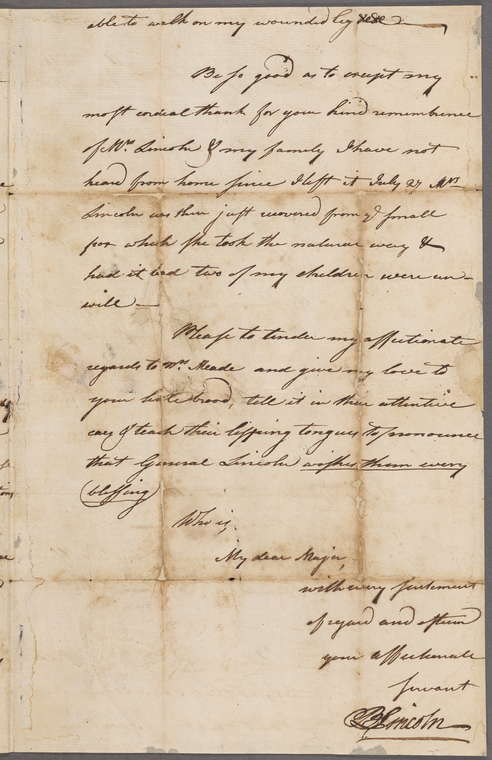 able to walk on my wounded leg
Be so good as to accept my
most cordial thank for your kind remembrence
of Mrs. Lincoln & my family I have not
heard from home since I left it July 27 Mrs
Lincoln was then just recovered from ye small
pox which she took the natural way &
had it bad two of my children were un-
will —
Please to tender my affectionate
regards to Mrs. Meade and give my love to
your hole brood, tell it in their attentive
ears & teach their lipping tongues to pronounce
that General Lincoln wishes them every
blessing
Who is,
My dear Major,
with every sentement
of regard and esteem
your affectionate
servant
B Lincoln